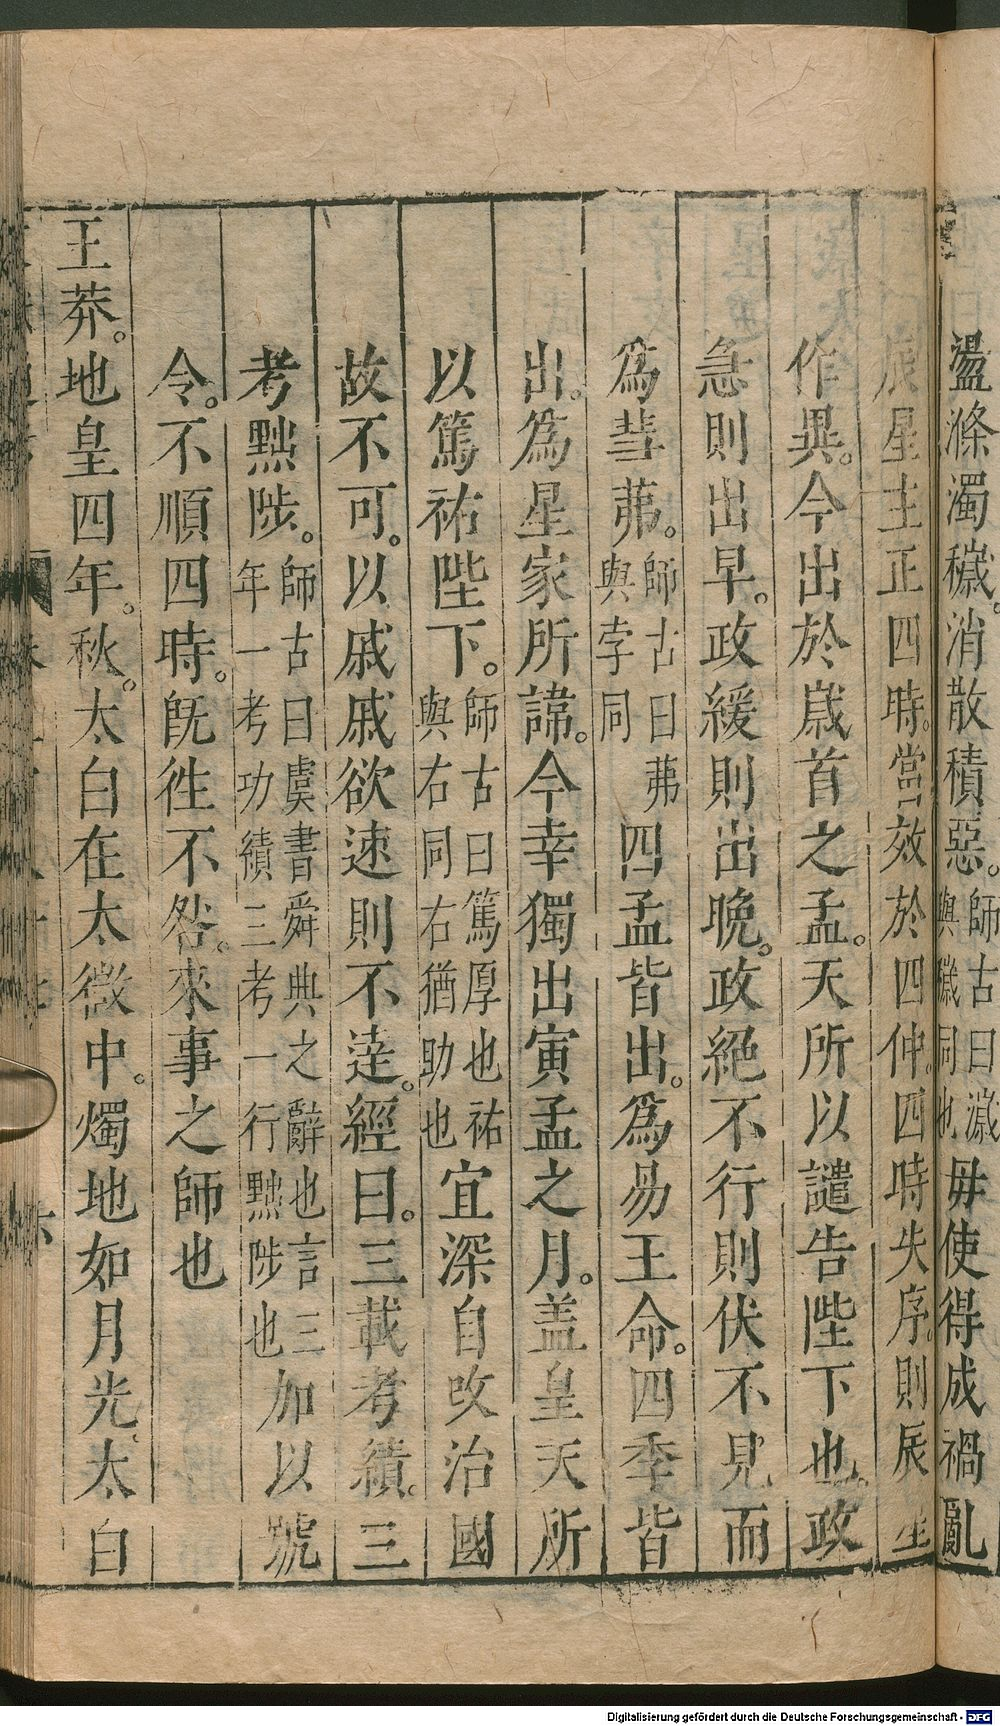 盪滌濁穢。消散積惡。師古曰濊與穢同也毋使得成禍亂
辰星主正四時。當效於四仲。四時失序。則辰星
作異。今出於歲首之孟。天所以譴告陛下也。政
急則出早。政緩則出晚。政絕不行則伏不見而
為彗茀。師古曰茀與孛同四孟皆出。為易王命。四季皆
出。為星家所諱。今幸獨出寅孟之月。盖皇天所
以篤祐陛下。師古曰篤厚也祐與右同右猶助也宜深自改治國
故不可。以戚戚欲速則不達。經曰。三載考績。三
考黜陟。師古曰虞書舜典之辭也言三年一考功績三考一行黜陟也加以號
令。不順四時。旣徃不咎。來事之師也
王莽。地皇四年。秋。太白在太微中。燭地如月光。太白
Digitalisierung gefördert durch die Deutsche Forschungsgemeinschaft - DFG